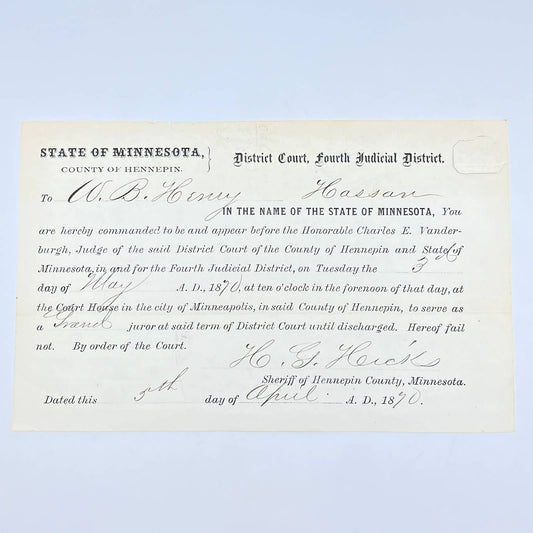 STATE OF MINNESOTA, } District Court, Fourth Judicial District.
COUNTY OF HENNEPIN.
To W. B. Henry Hassan
IN THE NAME OF THE STATE OF MINNESOTA, You
are hereby commanded to be and appear before the Honorable Charles E. Vander-
burgh, Judge of the said District Court of the County of Hennepin and State of
Minnesota, in and for the Fourth Judicial District, on Tuesday the 3d
day of May A. D., 1870, at ten o'clock in the forenoon of that day, at
the Court House in the city of Minneapolis, in said County of Hennepin, to serve as
a Grand juror at said term of District Court until discharged. Hereof fail
not. By order of the Court.
H. G. Hicks
Sheriff of Hennepin County, Minnesota.
Dated this 5th day of April A. D., 1870.